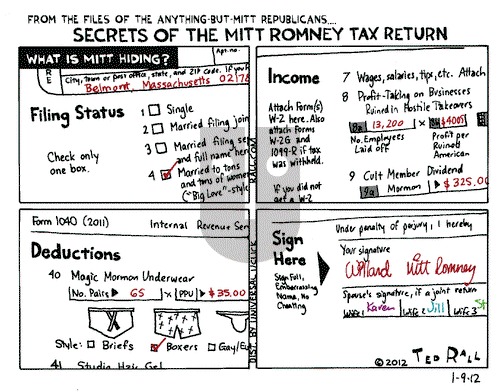 FROM THE FILES OF THE ANYTHING-BUT-MITT REPUBLICANS....
SECRETS OF THE MITT ROMNEY TAX RETURN
WHAT IS MITT HIDING?
Apt. no.
R
E
City, town or post office, state, and ZIP code. If you
Belmont, Massachusetts 02178
Filing Status
Check only
one box.
1 Single
2 Married filing join
3 Married filing se
and full name her
4 Married to tons
and tons of women
("Big Love"-style
Income
Attach Form(s)
W-2 here. Also
attach Forms
W-2G and
1099-R if tax
was withheld.
If you did not
get a W-2
7 Wages, salaries, tips, etc. Attach
8 Profit-Taking on Businesses
Ruined in Hostile Takeovers
8a 13,200 x $4001
No. Employees
Laid off
Profit per
Ruined
American
9 Cult Member Dividend
9a Mormon $325.00
Form 1040 (2011) Internal Revenue Ser
Deductions
40 Magic Mormon Underwear
No. Pairs 65 x PPU $35.00
Style: Briefs Boxers Gay/Eu
41 Studio Hair Gel
Sign
Here
Sign Full,
Embarrassing
Name, No
Cheating
Under penalty of perjury, I hereby
Your signature
Willard Mitt Romney
Spouse's signature, if a joint return
Wife 1 Karen Wife 2 Jill Wife 3 St
©2012 TED RALL
1-9-12
RALL.COM
DIST. BY UNIVERSAL UCLICK